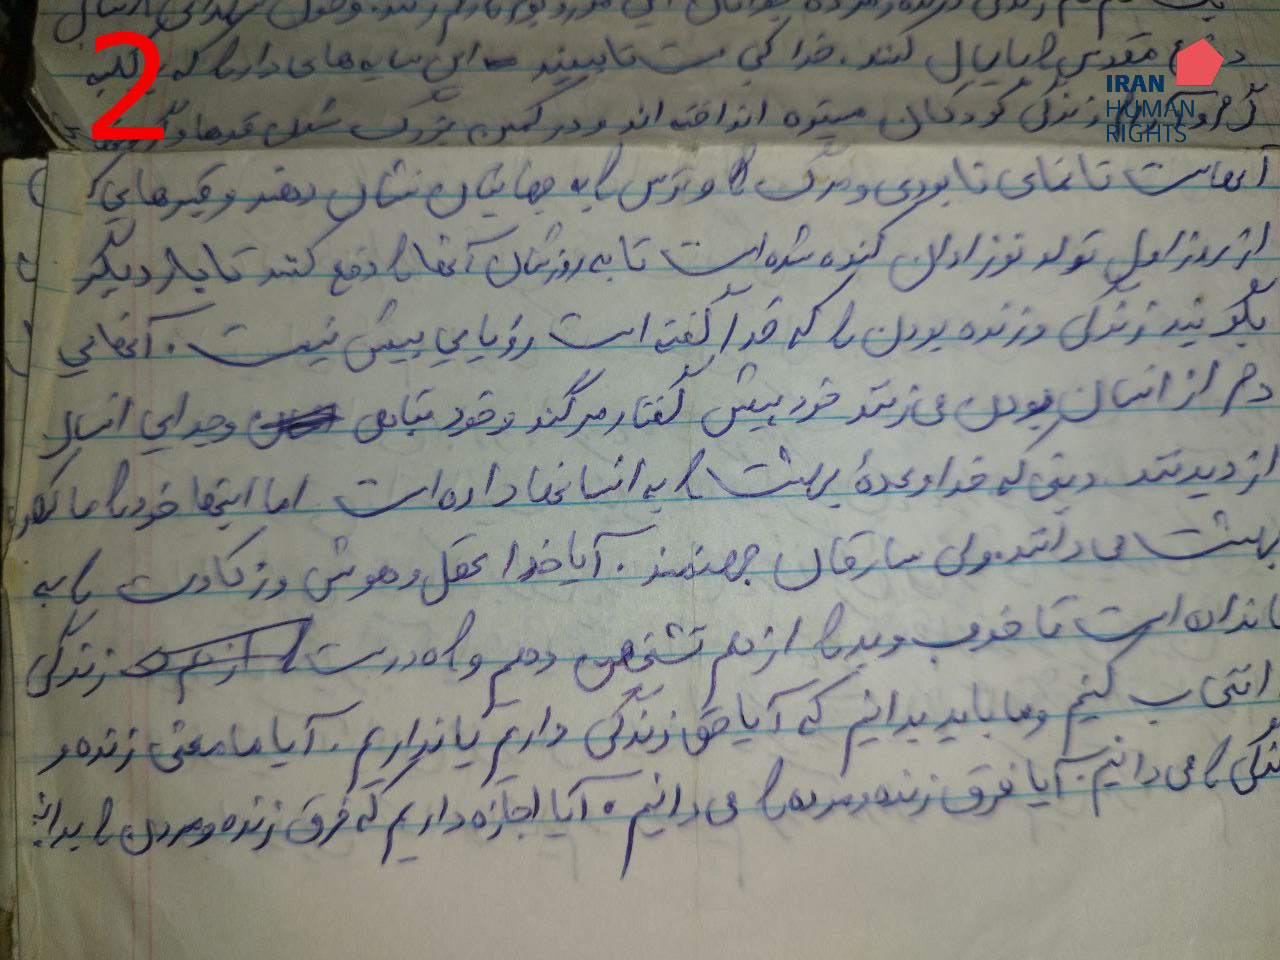 2
IRAN
HUMAN
RIGHTS
مقدس را پایمال کنند. خدا کی ست تا ببیند این سایه های دار را که
زندگی کودکان میتوه انداخته اند و در کمین بزرگ شدن قدها و
آنهاست تا نمای نابودی و مرگ را و ترس را به جهانیان نشان دهند و قبرهایی
از روز اول تولد نوزادان کنده شده است تا به روزشان آنها را دفع کنند تا بار دیگر
بگویند زندگی و زنده بودن را که خدا گفته است رؤیایی بیش نیست. آنهایی
دم از انسان بودن می زنند خود بیش گفتار مرگند و خود تباهی وجدایی انسان
از دیدنند. دینی که خدا وعدهٔ بهشت را به انسانها داده است اما اینها خود را مالک
بهشت می دانند. ولی سارقان جهنمند. آیا خدا عقل و هوش و زکاوت را به
ما نداده است تا خوب و بد را از هم تشخیص دهیم و راه درست زندگی
انتخاب کنیم و ما باید بدانیم که آیا حق زندگی داریم یا نداریم. آیا ما معنی زنده و
زندگی را می دانیم. آیا فرق زنده و مرده را می دانیم. آیا اجازه داریم که فرق زنده و مردن را بدانیم